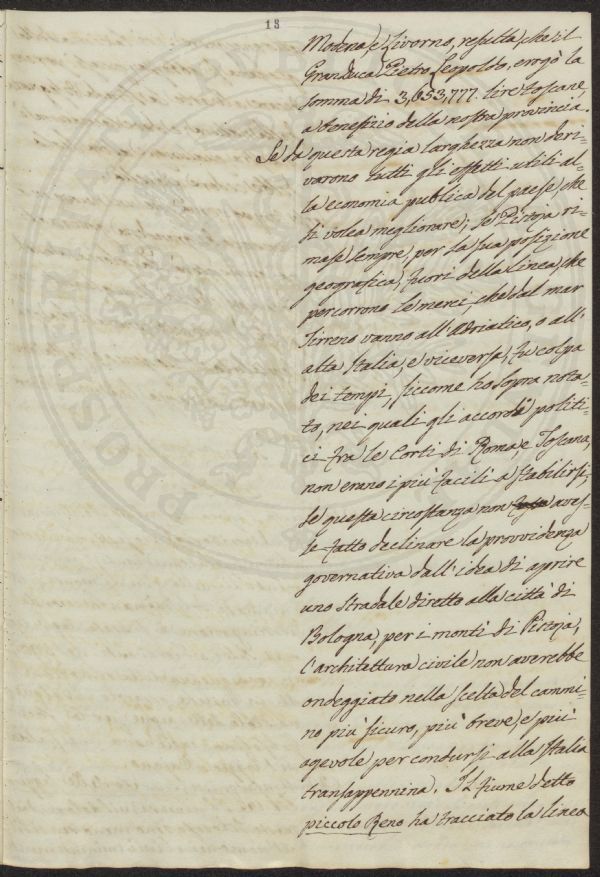 18
Modena, e Livorno, resulta, che il
Granduca Pietro Leopoldo, erogò la
somma di 3,653,777. lire toscane,
a benefizio della nostra provincia.
Se da questa regia larghezza non deri-
varono tutti gli effetti utili al-
la economia publica del paese, che
si volea meglionare; se Pistoja ri-
mase sempre, per la sua posizione
geografica, fuori della linea, che
percorrono le merci, che dal mar
Tirreno vanno all'Adriatico, o all'
alta Italia, e viceversa, fu colpa
dei tempi, siccome ho sopra nota-
to, nei quali gli accordi politi-
ci fra le Corti di Roma, e Toscana,
non erano i più facili a stabilirsi;
se questa circostanza non aves-
se fatto declinare la provvidenza
governativa dall'idea di aprire
uno stradale diretto alla città di
Bologna, per i monti di Pistoja,
l'architettura civile non averebbe
ondeggiato nella scelta del cammi-
no più sicuro, più breve, e più
agevole per condursi alla Italia
transappennina. Il fiume detto
piccolo Reno ha tracciato la linea
PROSPER